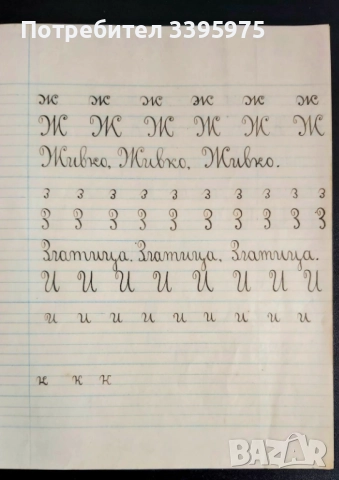 Потребител 3395975
ж ж ж ж ж ж
Ж Ж Ж Ж Ж Ж
Живко, Живко, Живко.
з з з з з з з з з
З З З З З З З З З
Златица. Златица, Златица.
И И И И И И И И
и и и и и и и и и
к к к
BAZAR